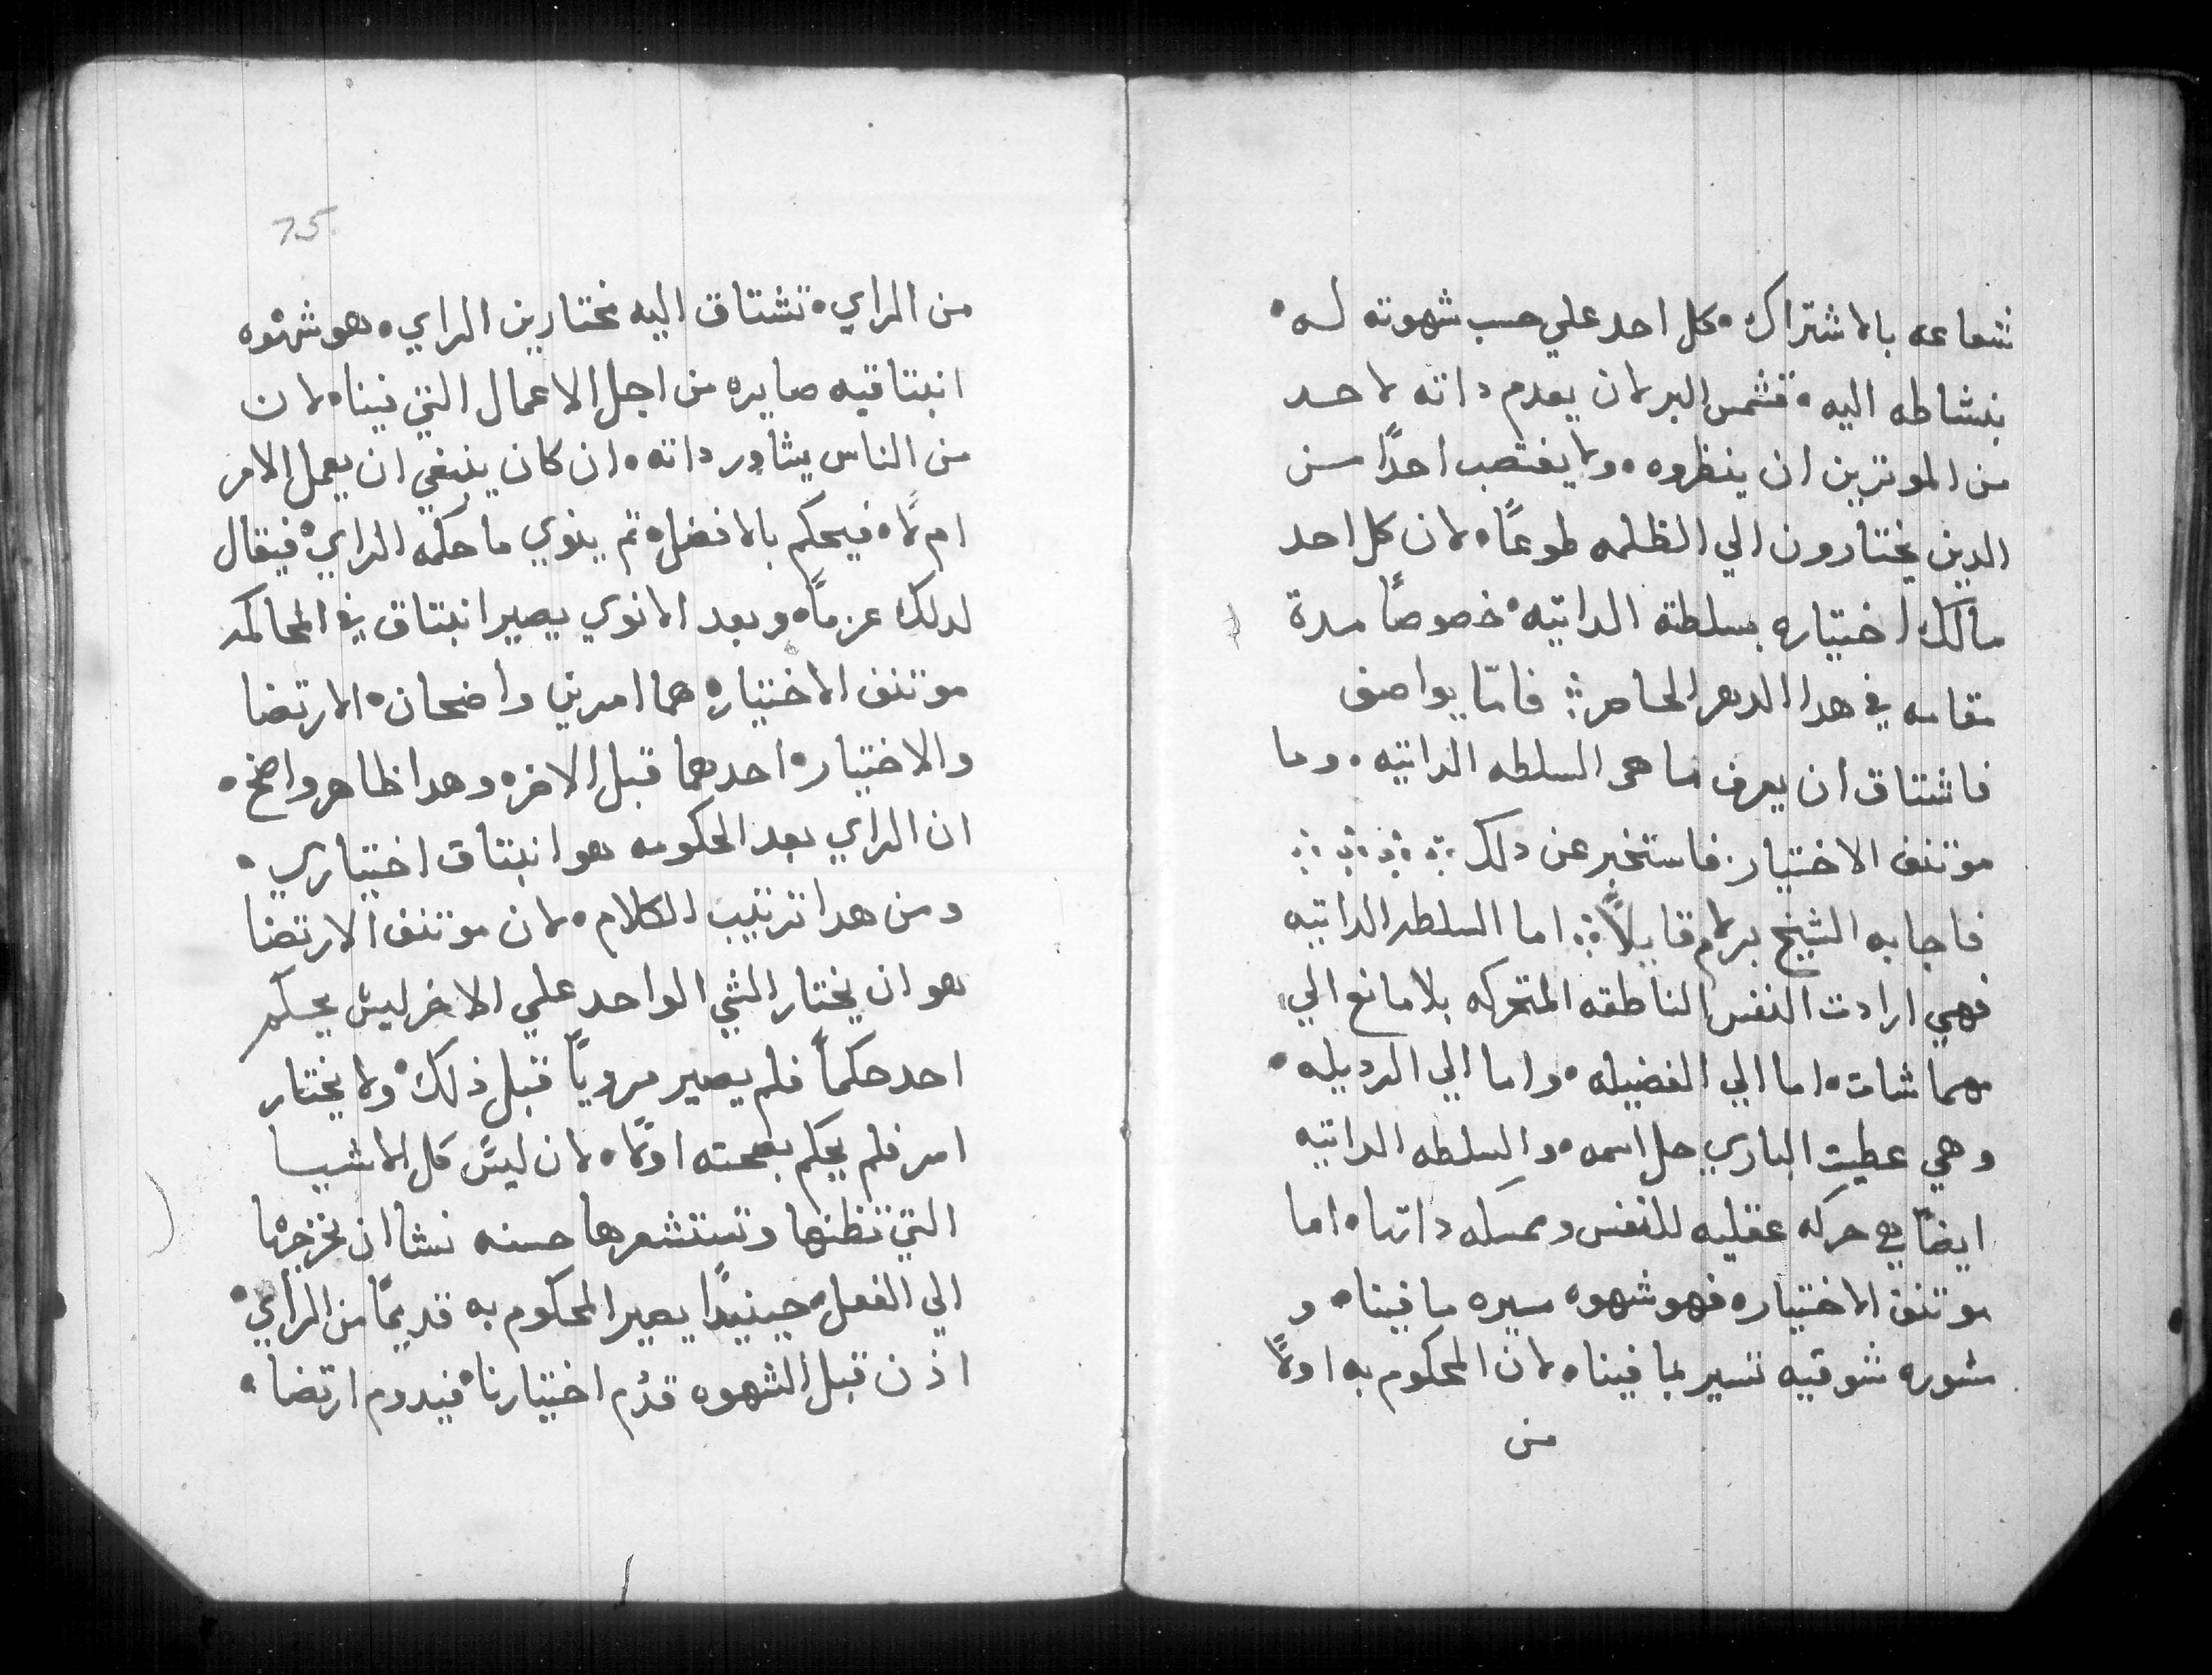 شعاعه بالاشتراك. كل احد علي حسب شهوته له.
بنشاطه اليه. فشمس البر لان يعدم داته لاحد
من الموترين ان ينظروه. ولا يغتصب احدًا من
الدين يختارون الي الظلمه طوعًا. لان كل احد
مالك اختياره بسلطته الداتيه. خصوصًا مدة
مقامه في هدا الدهر الحاضر∴ فامّا يواصف
فاشتاق ان يعرف ما هي السلطه الداتيه. وما
موتنف الاختيار. فاستخبر عن دلك ∴ ∴ ∴ ∴
فاجابه الشيخ برلام قايلاً∴ اما السلطه الداتيه
فهي ارادت النفس الناطقه المتحركه بلا مانع الي
مهما شات. اما الي الفضيله. واما الي الرديله.
وهي عطيت الباري جل اسمه. والسلطه الداتيه
ايضًا هي حركه عقليه للنفس وممسكه داتها. اما
موتنف الاختيار. فهو شهوه سيره ما فينا. و
شوره شوقيه تسير بما فينا. لان المحكوم به اولاً
من
75
من الراي. تشتاق اليه مختارين الراي. هو شهوه
انبتاقيه صايره من اجل الاعمال التي فينا. لان
من الناس يشاور داته. ان كان ينبغي ان يعمل الامر
ام لا. فيحكم بالافضل. تم ينوي ما حكمه الراي. فيقال
لدلك عزمًا. وبعد الانوي يصير انبتاق في المحاكمه
موتنف الاختيار. هما امرين واضحان. الارتضا
والاختيار. احدهما قبل الاخر. وهدا ظاهر واضح.
ان الراي بعد الحكومه هو انبتاق اختياري.
ومن هدا ترتيب الكلام. لان موتنف الارتضا
هو ان يختار الشي الواحد علي الاخر ليش يحكم
احد حكماً فلم يصير مرويًا قبل ذلك. ولا يختار
امر فلم يحكم بصحته اولاً. لان ليس كل الاشيا
التي تظنها وتستشعرها حسنه نشا ان نخرجها
الي الفعل. حينيدًا يصير المحكوم به قديمًا من الراي.
اذن قبل الشهوه قدم اختيارنا. فيدوم ارتضا.